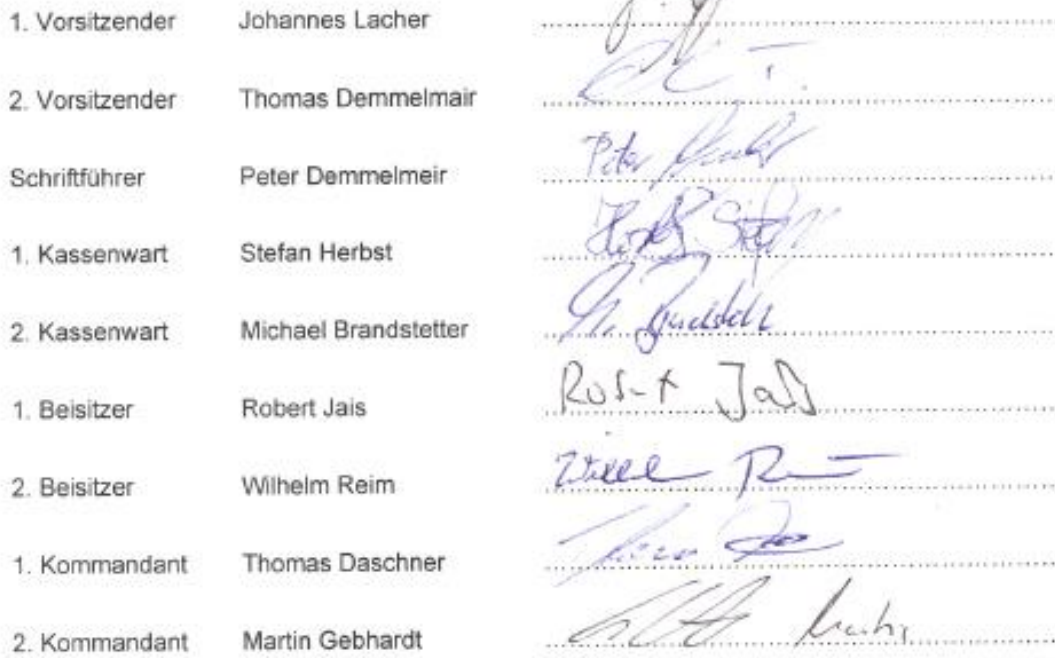 1. Vorsitzender Johannes Lacher
2. Vorsitzender Thomas Demmelmair
Schriftführer Peter Demmelmeir Peter
1. Kassenwart Stefan Herbst Herbst Stefan
2. Kassenwart Michael Brandstetter
1. Beisitzer Robert Jais Robert Jais
2. Beisitzer Wilhelm Reim
1. Kommandant Thomas Daschner
2. Kommandant Martin Gebhardt Martin